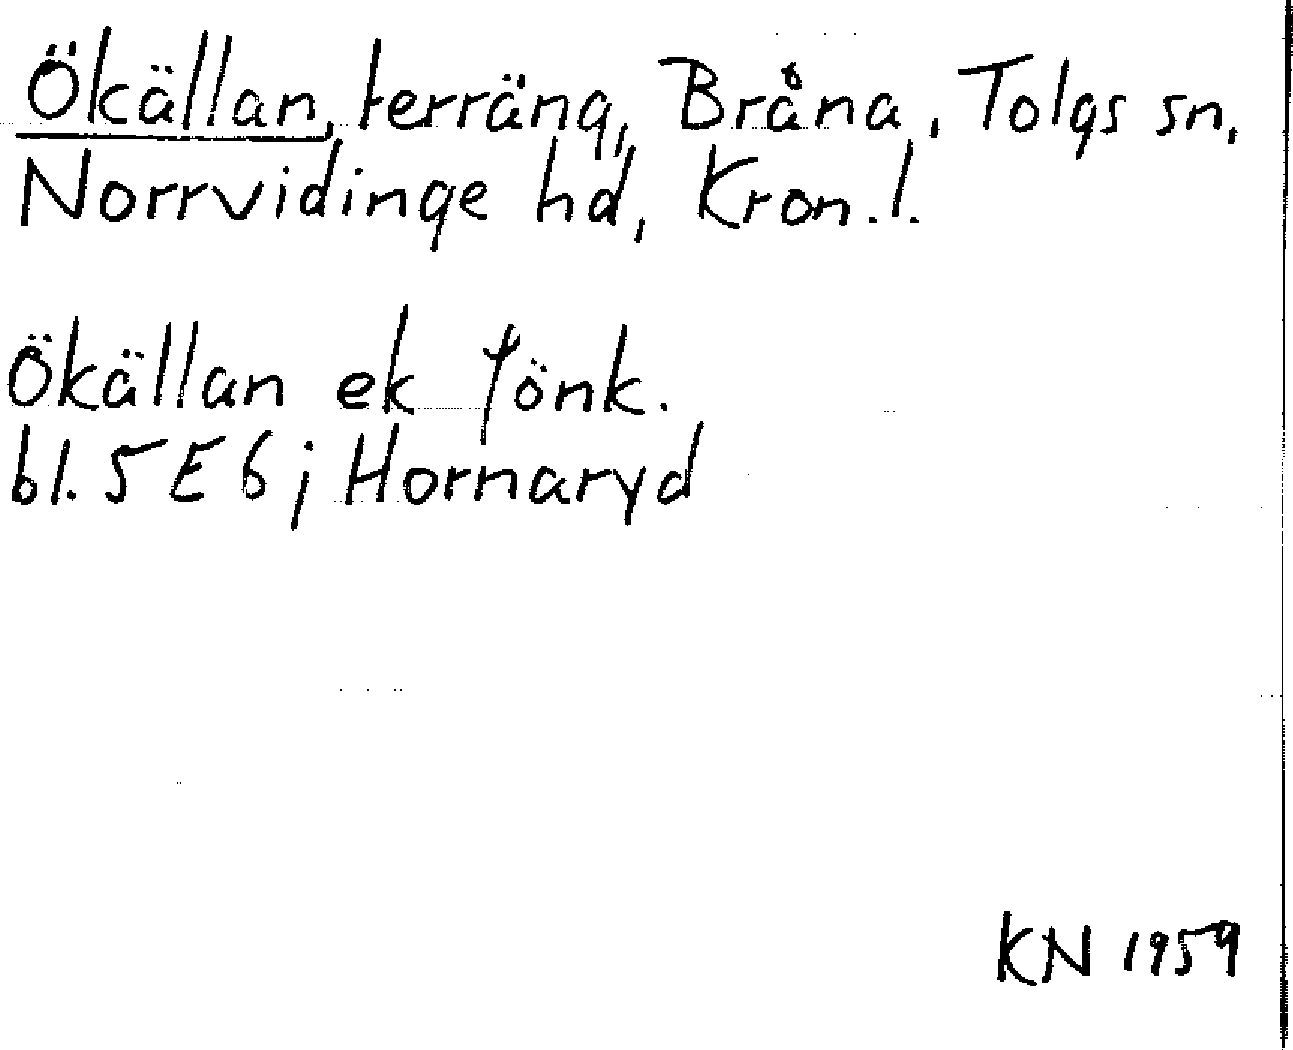 Ökällan, terräng, Bråna, Tolgs sn,
Norrvidinge hd, Kron.l.
Ökällan ek fönk.
bl. 5 E 6 j Hornaryd
KN 1959